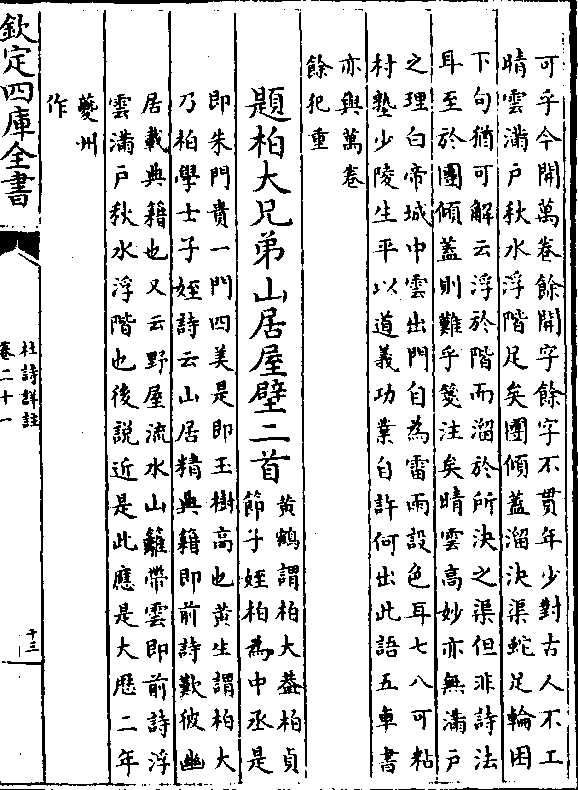 可乎今開萬卷餘開字餘字不貫年少對古人不工
晴雲滿戶秋水浮階足矣團傾蓋溜決渠蛇足輪囷
下句猶可解云浮於階而溜於所決之渠但非詩法
耳至於團傾蓋則難乎箋注矣晴雲高妙亦無滿戶
之理白帝城中雲出門自為雷雨設色耳七八可粘
村塾少陵生平以道義功業自許何出此語五車書
亦與萬卷
餘犯重
題柏大兄弟山居屋壁二首
黄鶴謂柏大葢柏貞
節子姪柏為中丞是
即朱門貴一門四美是即玉樹高也黄生謂柏大
乃柏學士子姪詩云山居精典籍即前詩歎彼幽
居載典籍也又云野屋流水山籬帶雲即前詩浮
雲滿戶秋水浮階也後説近是此應是大厯二年
夔州
作
欽定四庫全書
杜詩詳註
卷二十一
十三